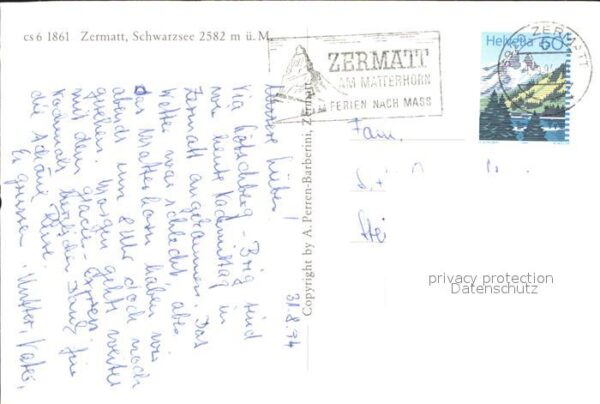 cs 6 1861 Zermatt, Schwarzsee 2582 m ü. M.
ZERMATT
AM MATTERHORN
FERIEN NACH MASS
ZERMATT
Helvetia 60
Copyright by A. Perren-Barberini, Zermatt
31.8.74
Unsere Lieben!
Via Lötschberg - Brig sind
wir heute Nachmittag in
Zermatt angekommen. Das
Wetter war schlecht, aber
das Matterhorn haben wir
abends um 8 Uhr doch noch
gesehen. Morgen geht's weiter
mit dem Glacier-Express.
Nochmals herzlichen Dank für
die schöne Reise.
Es grüssen Mutter, Vater,
Fam.
privacy protection
Datenschutz